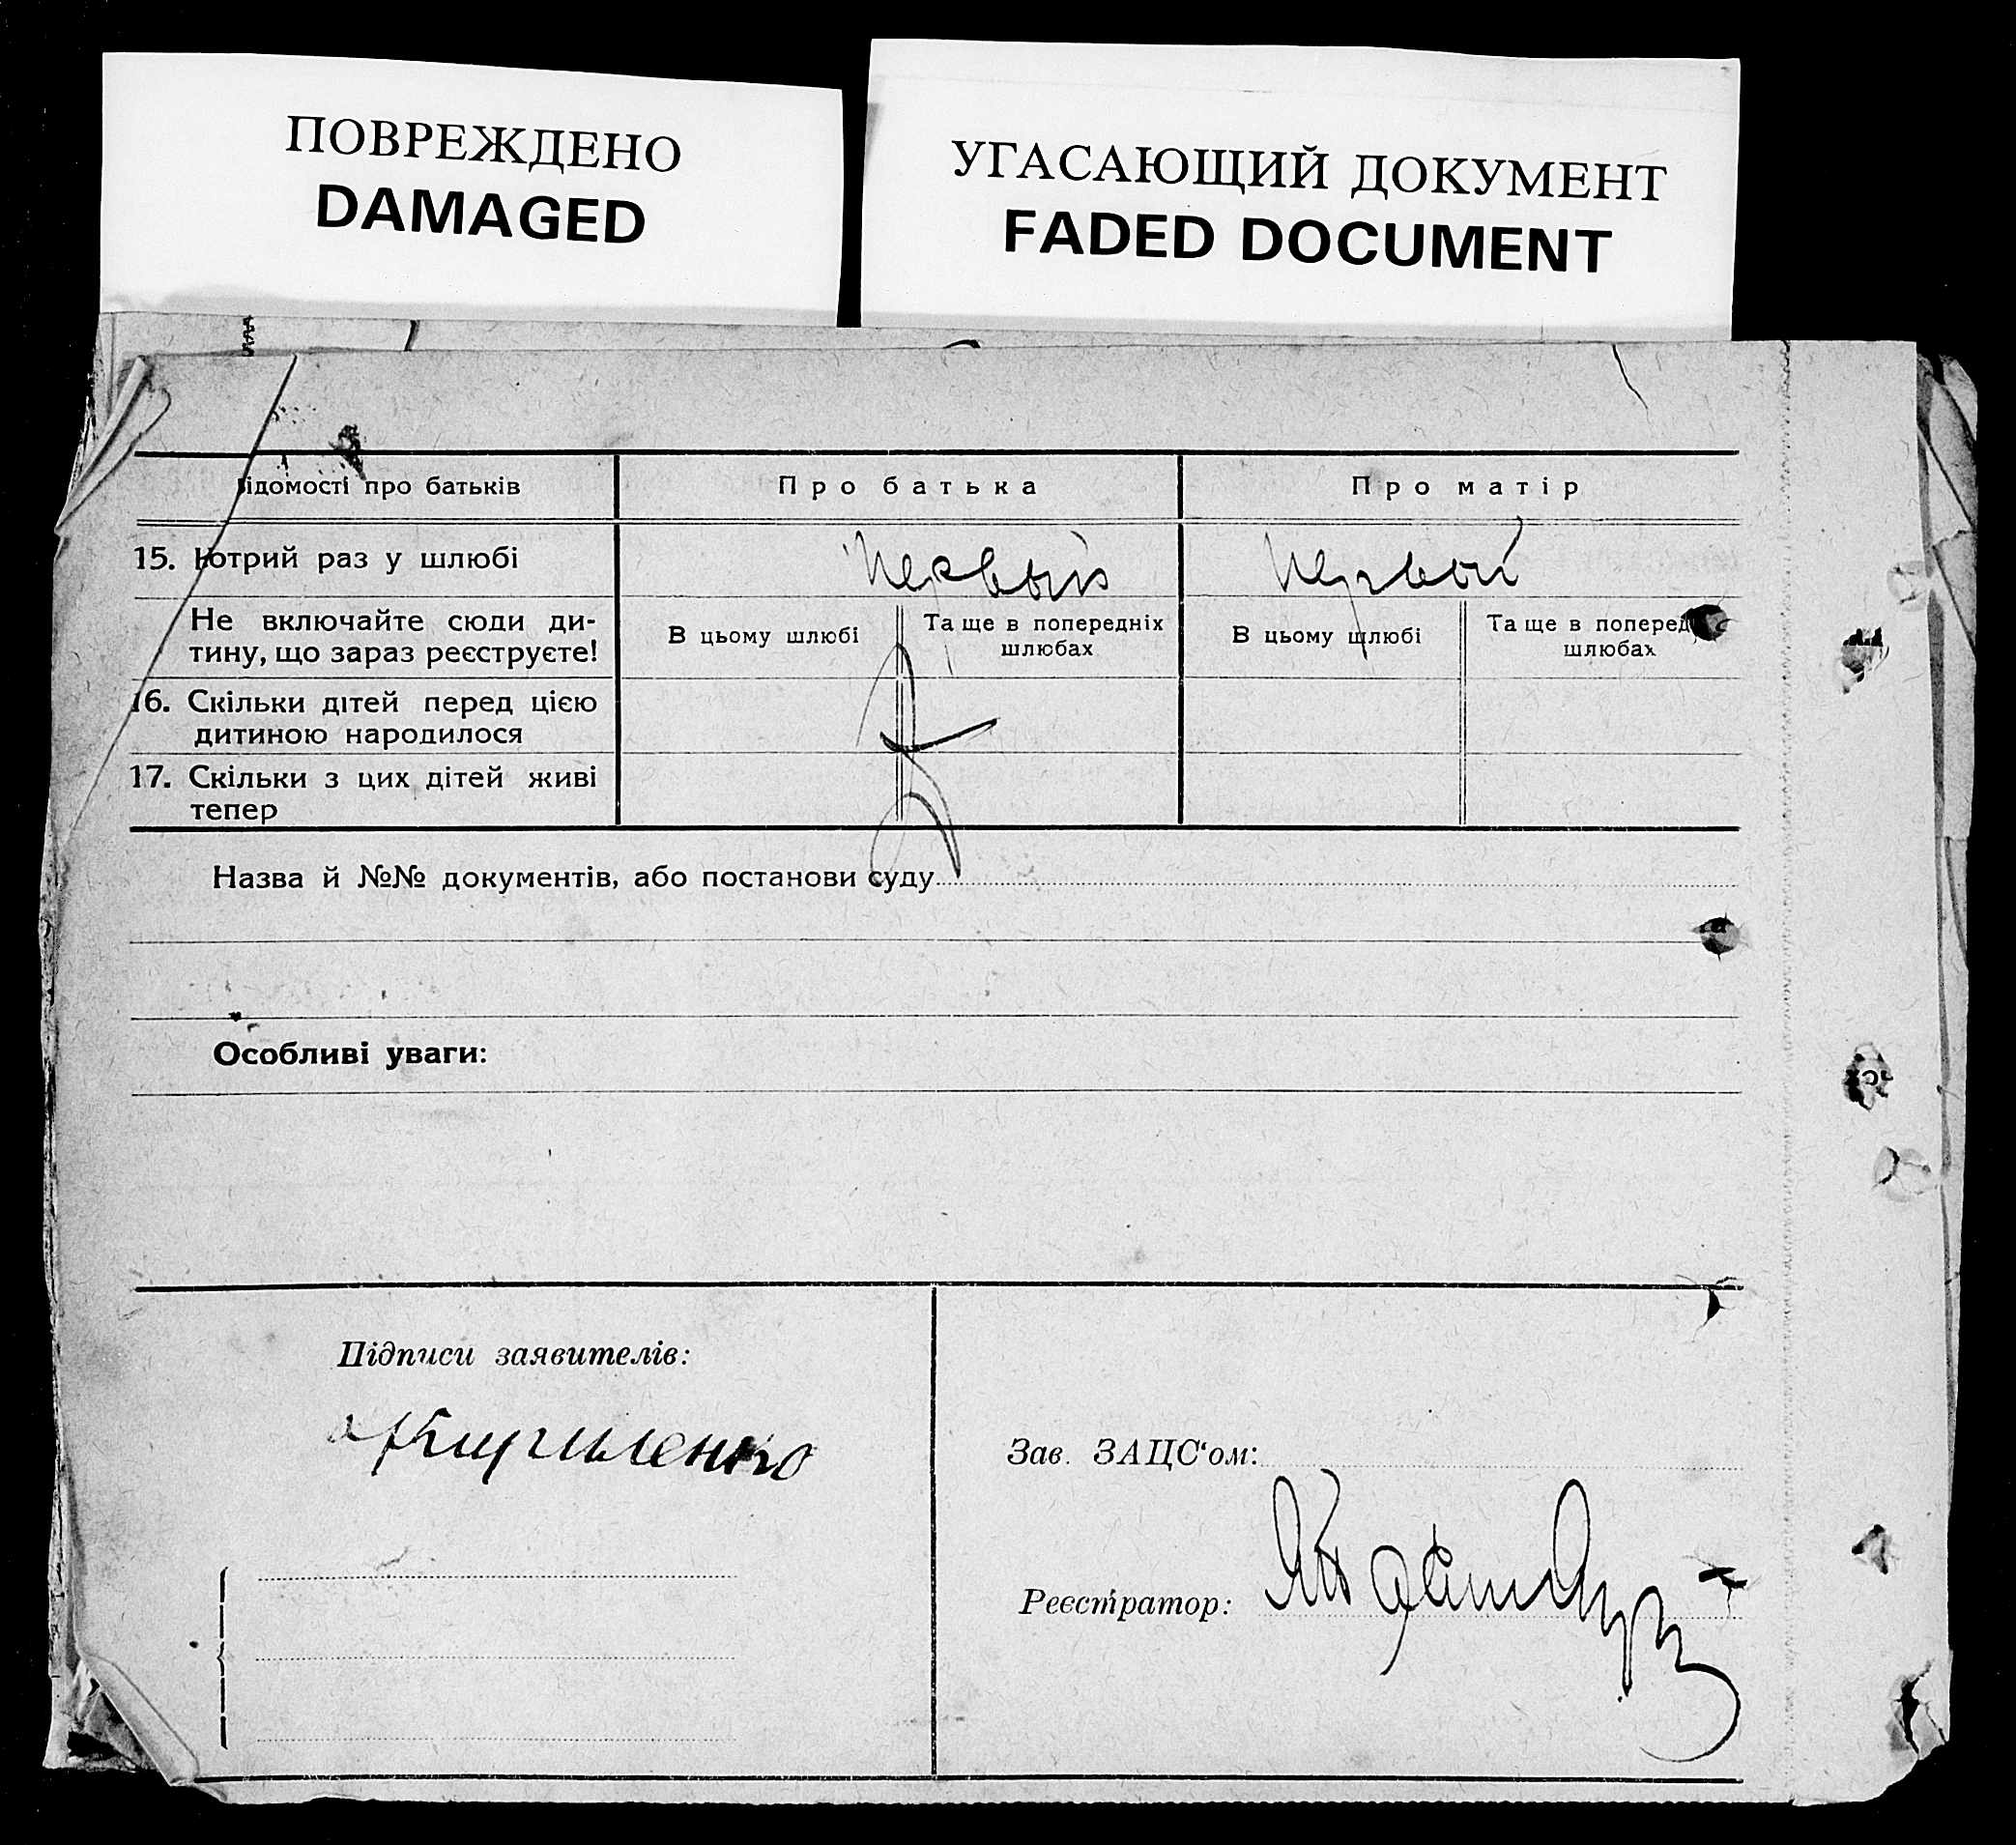 ПОВРЕЖДЕНО
DAMAGED
УГАСАЮЩИЙ ДОКУМЕНТ
FADED DOCUMENT
Відомості про батьків
Про батька
Про матір
15. Котрий раз у шлюбі
первый
первый
Не включайте сюди ди-
тину, що зараз реєструєте!
В цьому шлюбі
Та ще в попередніх
шлюбах
В цьому шлюбі
Та ще в поперед
шлюбах
16. Скільки дітей перед цією
дитиною народилося
17. Скільки з цих дітей живі
тепер
Назва й №№ документів, або постанови суду
Особливі уваги:
Підписи заявителів:
Кириленко
Зав. ЗАЦС‘ом:
Реєстратор: